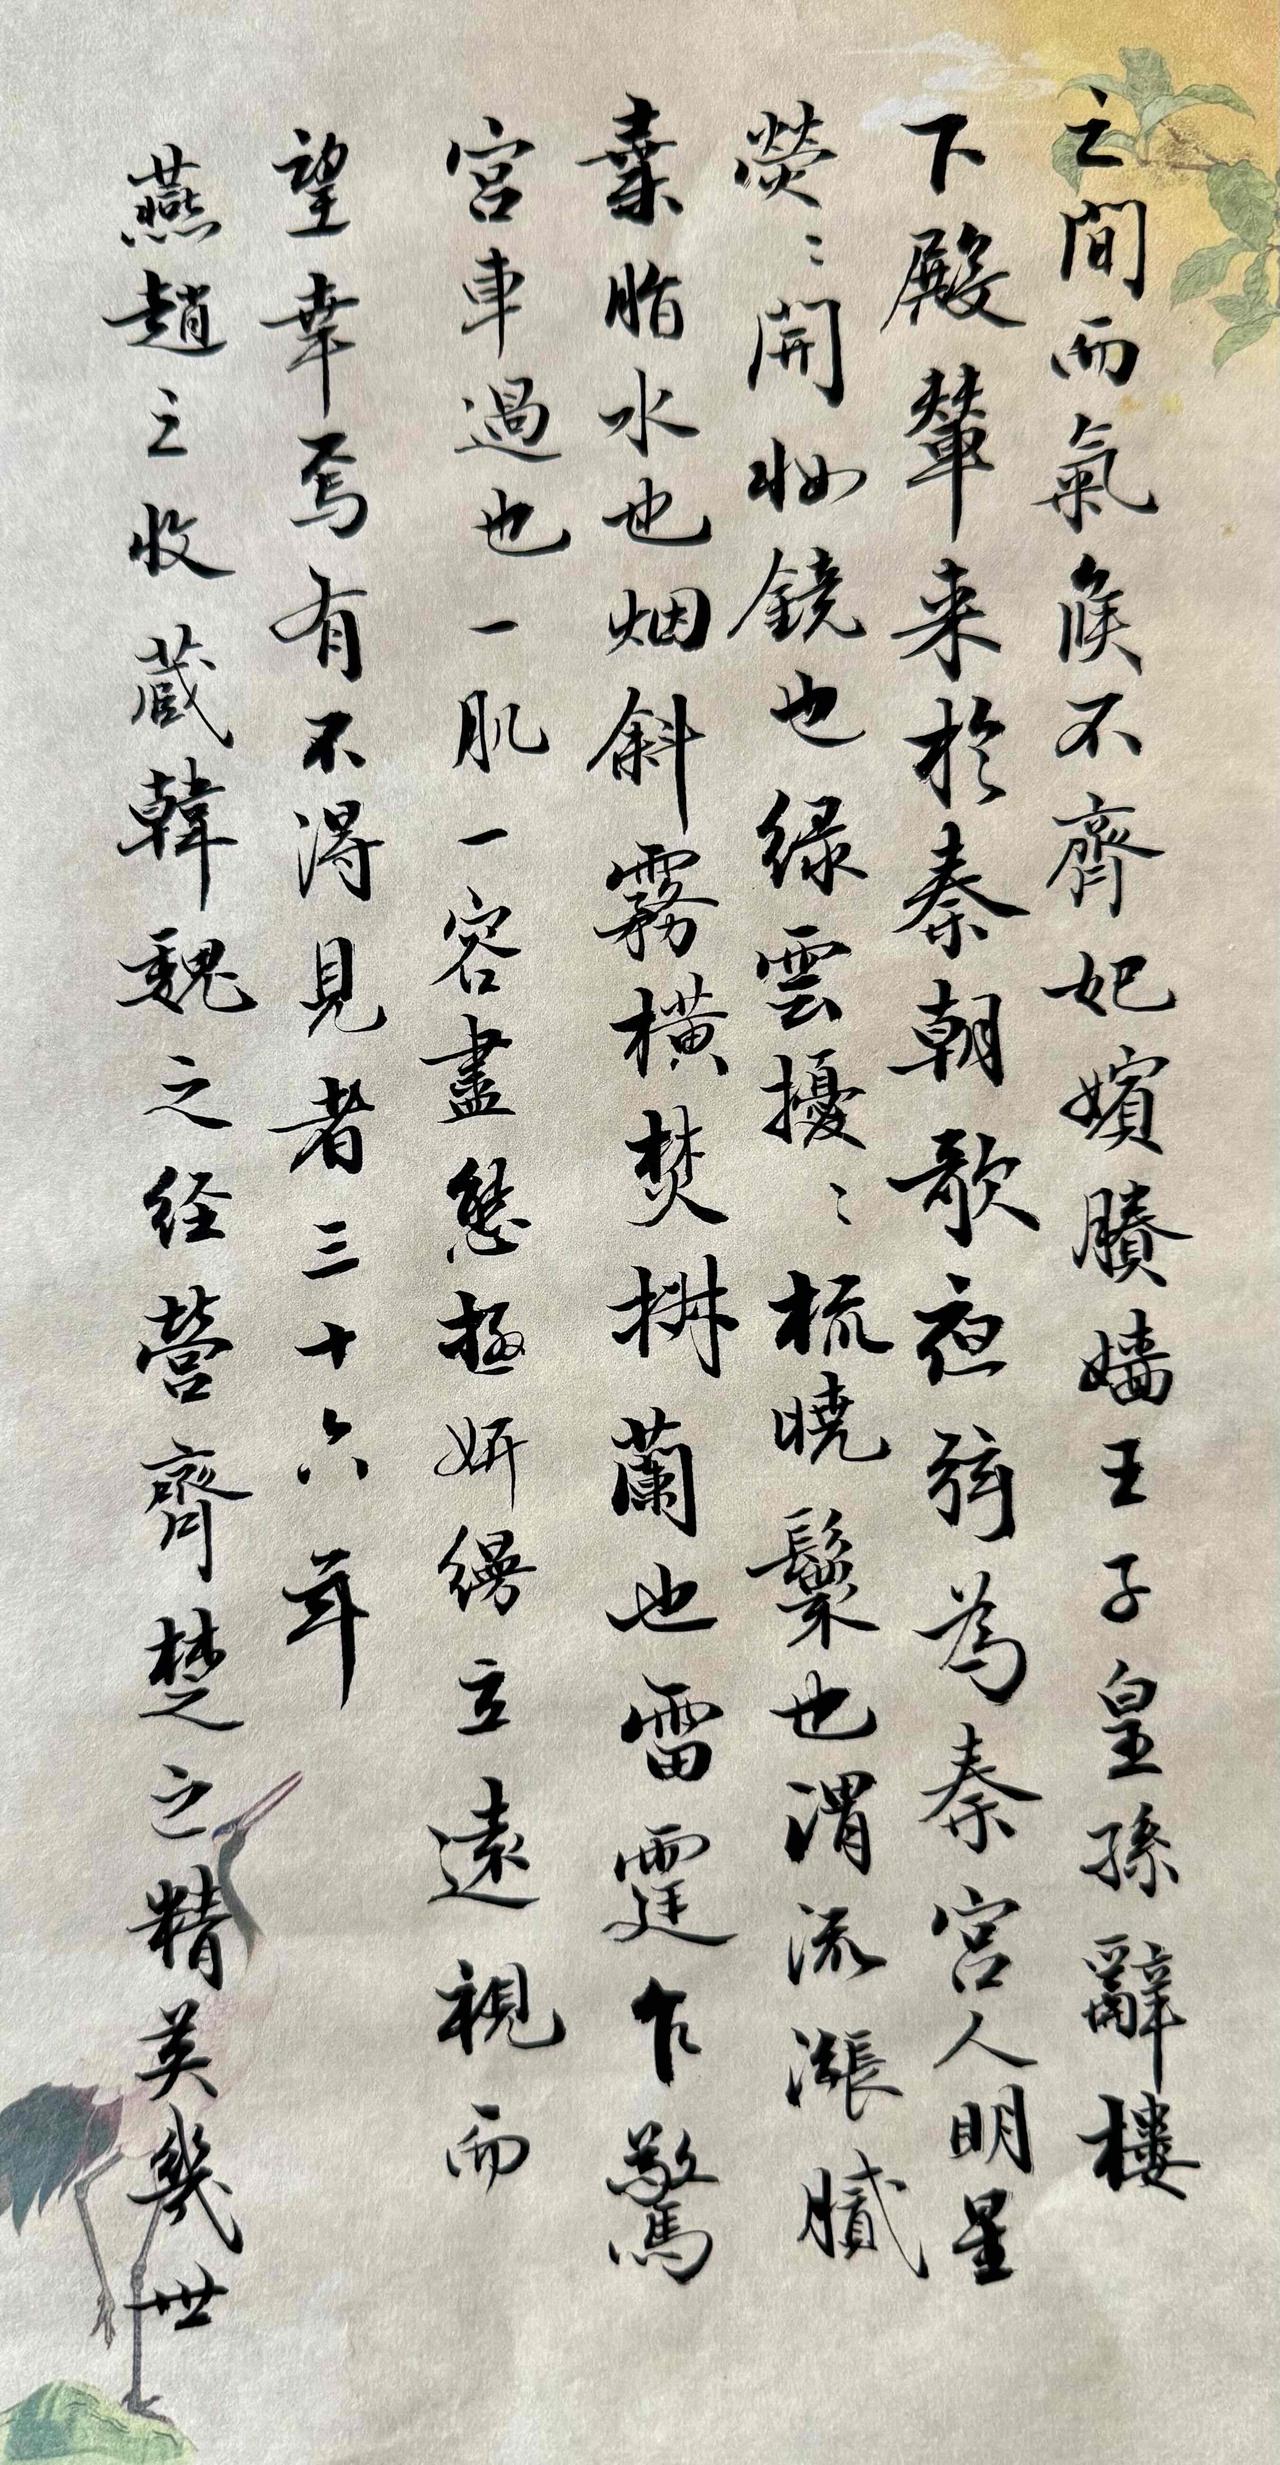 之間而氣候不齊妃嬪媵嬙王子皇孫辭樓
下殿輦来於秦朝歌夜弦為秦宮人明星
熒〻開妝鏡也緑雲擾〻梳曉鬟也渭流漲膩
棄脂水也烟斜霧横焚椒蘭也雷霆乍驚
宮車過也一肌一容盡態極妍縵立遠視而
望幸焉有不得見者三十六年
燕趙之收蔵韓魏之经營齊楚之精英幾世